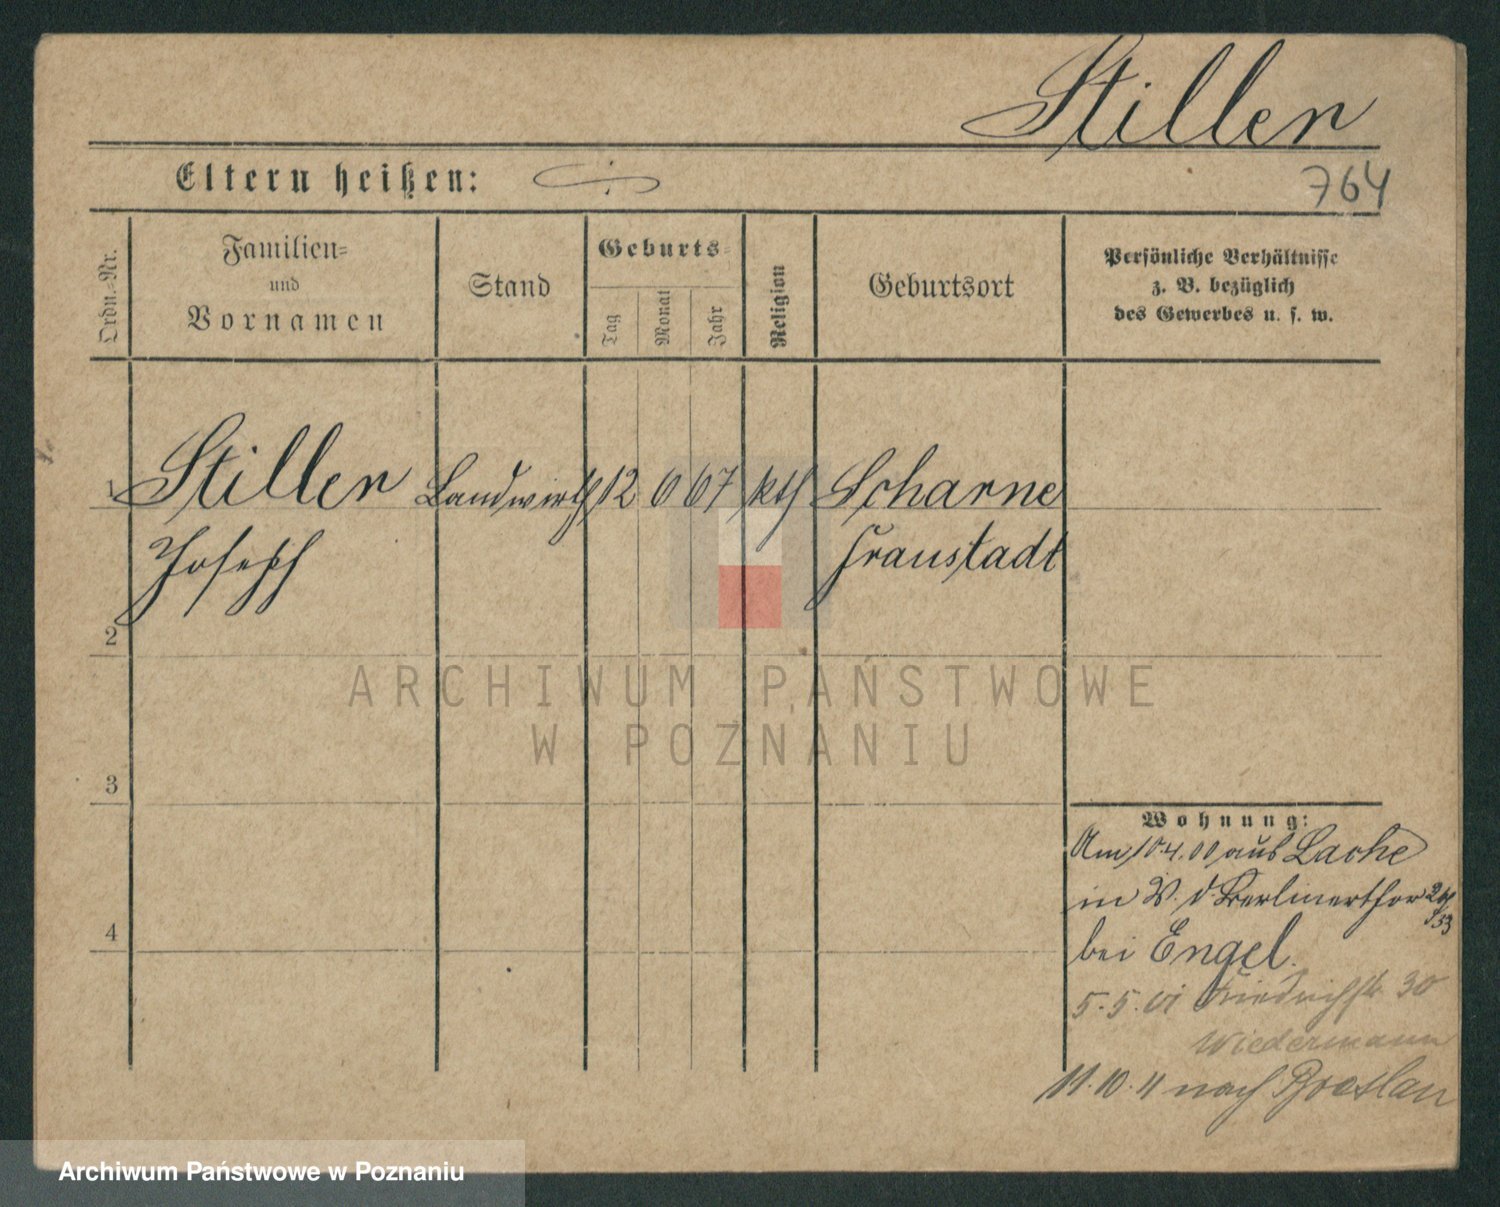 Stiller
Eltern heißen:
764
Ordn.-Nr.
Familien-
und
Vornamen
Stand
Geburts-
Tag
Monat
Jahr
Religion
Geburtsort
Persönliche Verhältnisse
z. B. bezüglich
des Gewerbes u. s. w.
1 Stiller Landwirth 12 6 67 kth Scharne
Joseph Fraustadt
2
ARCHIWUM PAŃSTWOWE
W POZNANIU
3
Wohnung:
Am 10.4.00 aus Lache
in V. d. Berlinerthor
4
bei Engel.
5.5.01 Friedrichstr 30
Wiedermann
11.10.11 nach Breslau
Archiwum Państwowe w Poznaniu